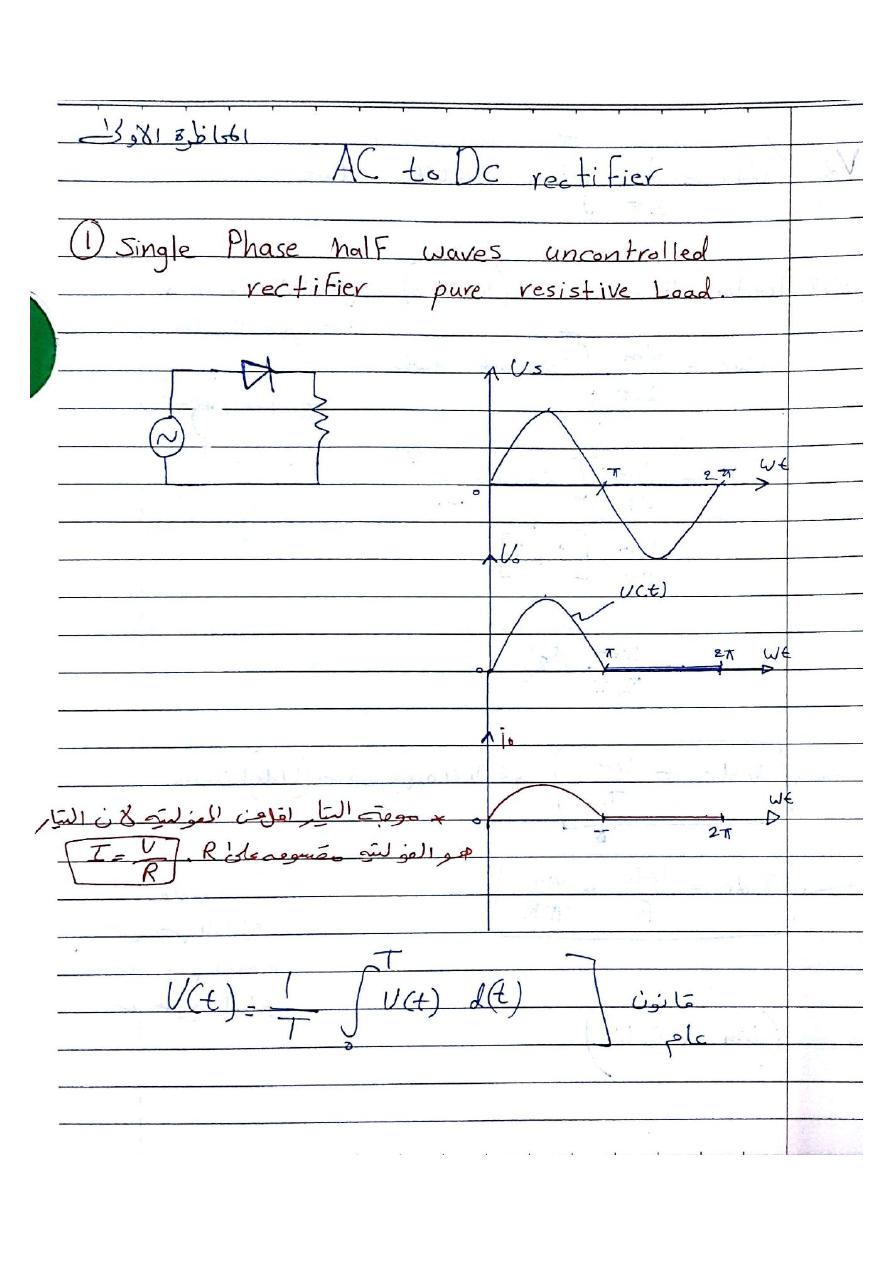 المحاظرة الاولى
AC to Dc rectifier
① Single Phase half waves uncontrolled
rectifier pure resistive Load.
Vs
π
2π
wt
0
Vo
V(t)
π
2π
wt
0
io
wt
0
π
2π
* موجة التيار اقل من الفولتيه لان التيار
هو الفولتيه مقسومه على R. I = V/R
V(t) = 1/T ∫₀ᵀ V(t) d(t) ] قانون
عام